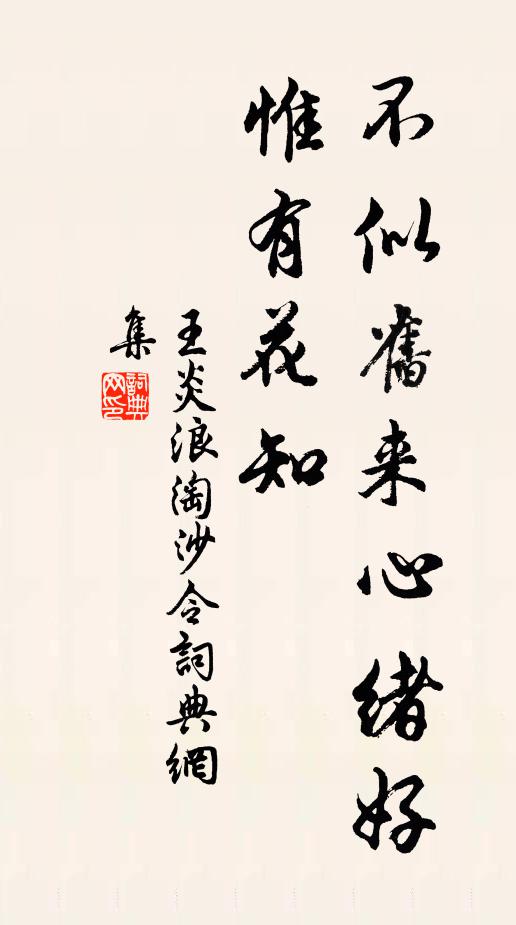 不似舊来心绪好
惟有花知
王炎浪淘沙令詞典網
集
詞典
网印